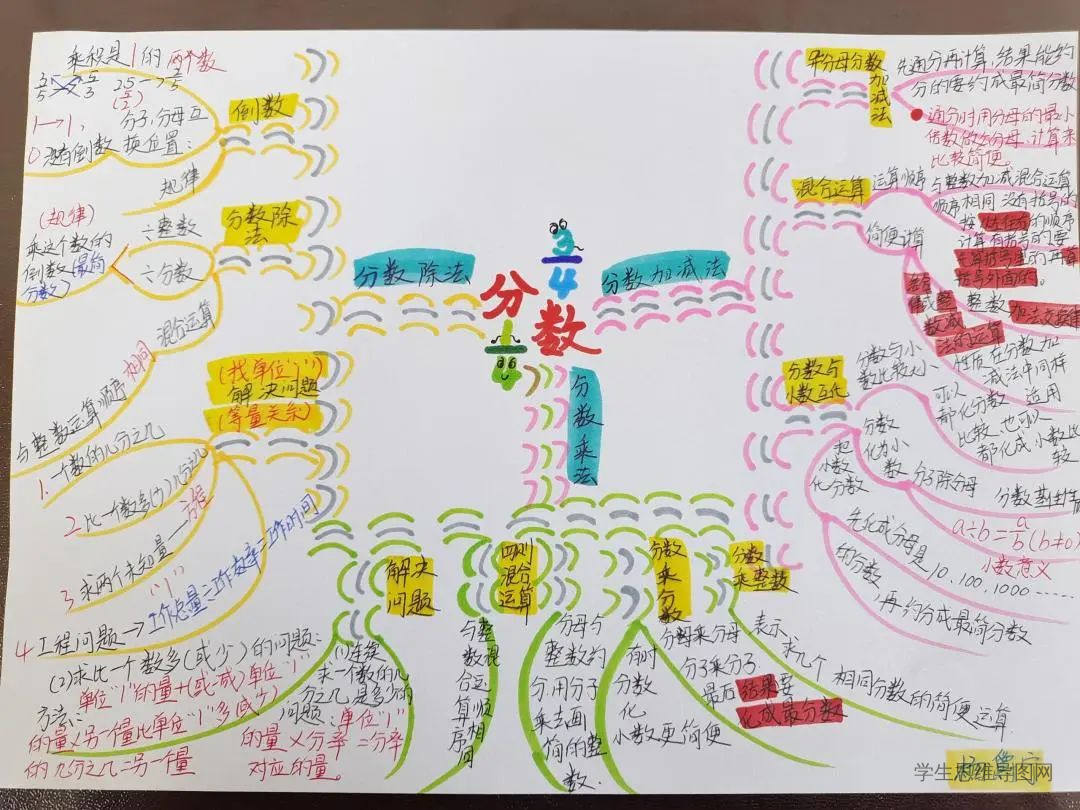 分数
3
4
分数除法
倒数
乘积是1的两个数
分子,分母互
换位置:
1→1,
0没有倒数
规律
分数除
法
÷整数
÷分数
(规律)
乘这个数的
倒数(最简
分数)
混合运算
与整数运算顺序相同
(找单位"1")
解决问题
(等量关系)
1.一个数的几分之几
2比一个数多(少)几分之几
3求两个未知量——方程
4工程问题→工作总量÷工作效率=工作时间
"1"
分数加减法
分母分数
加减法
先通分再计算,结果能约
分的要约成最简分数
通分时用分母的最小
倍数做公分母,计算来
比较简便。
混合运算
运算顺序
与整数加减混合运算
顺序相同 没有括号的
按从左往右的顺序
计算 有括号的要
先算括号里的再算
括号外面的。
简便计算
整数加法交换律
减法的运算
性质在分数加
减法中同样
适用
分数与
小数互化
分数与小
数比较大小
可以
都化分数
比较,也可以
都化成小数比
较
分数
化为小
数
分子除分母
a÷b=a/b(b≠0)
小数
化分数
小数意义
先化成分母是10,100,1000……
的分数,再约分成最简分数
分数乘法
分数
乘整数
表示
求几个相同分数的简便运算
分母与
整数约
分,用分子
乘去画
简的整
数.
分数
乘分数
分母乘分母
分子乘分子.
最后结果要
化成最分数
有时
分数
化
小数更简便
四则
混合
运算
与整
数混
合运
算顺
序相
同
解决
问题
(1)连续
求一个数的几
分之几是多少的
问题:单位"1"
的量×分率=分率
对应的量。
(2)求比一个数多(或少)的问题:
方法:单位"1"的量+(或减)单位"1"
的量×另一个量比单位"1"多(或少)
的几分之几=另一个量
学生思维导图网